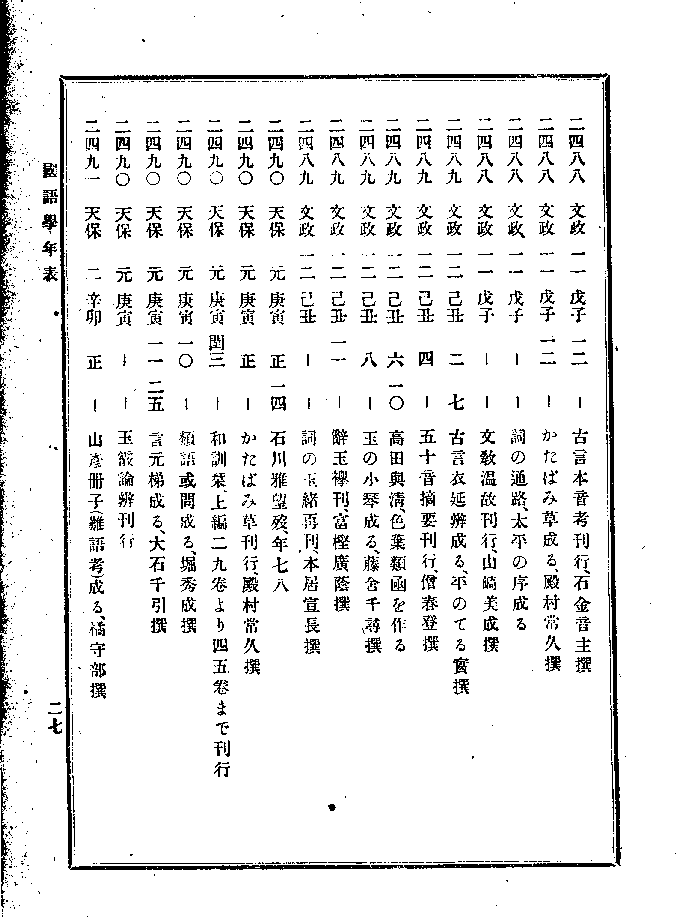 二四八八 文政 一一 戊子 一二 ― 古言本音考刊行、石金音主撰
二四八八 文政 一一 戊子 一二 ― かたばみ草成る、殿村常久撰
二四八八 文政 一一 戊子 ― ― 詞の通路、太平の序成る
二四八八 文政 一一 戊子 ― ― 文敎溫故刊行、山崎美成撰
二四八九 文政 一二 己丑 二 七 古言衣延辨成る、平のてる實撰
二四八九 文政 一二 己丑 四 ― 五十音摘要刊行、僧春登撰
二四八九 文政 一二 己丑 六 一〇 高田與淸、色葉類函を作る
二四八九 文政 一二 己丑 八 ― 玉の小琴成る、藤舍千尋撰
二四八九 文政 一二 己丑 一一 ― 辭玉襷刊、富樫廣蔭撰
二四八九 文政 一二 己丑 ― ― 詞の玉緖再刊、本居宣長撰
二四九〇 天保 元 庚寅 正 一四 石川雅望歿、年七八
二四九〇 天保 元 庚寅 正 ― かたばみ草刊行、殿村常久撰
二四九〇 天保 元 庚寅 閏三 ― 和訓栞、上編二九卷より四五卷まで刊行
二四九〇 天保 元 庚寅 一〇 ― 類語或問成る、堀秀成撰
二四九〇 天保 元 庚寅 一一 二五 言元梯成る、大石千引撰
二四九〇 天保 元 庚寅 ― ― 玉霰論辨刊行
二四九一 天保 二 辛卯 正 ― 山彥冊子(難語考)成る、橘守部撰
國語學年表
二七